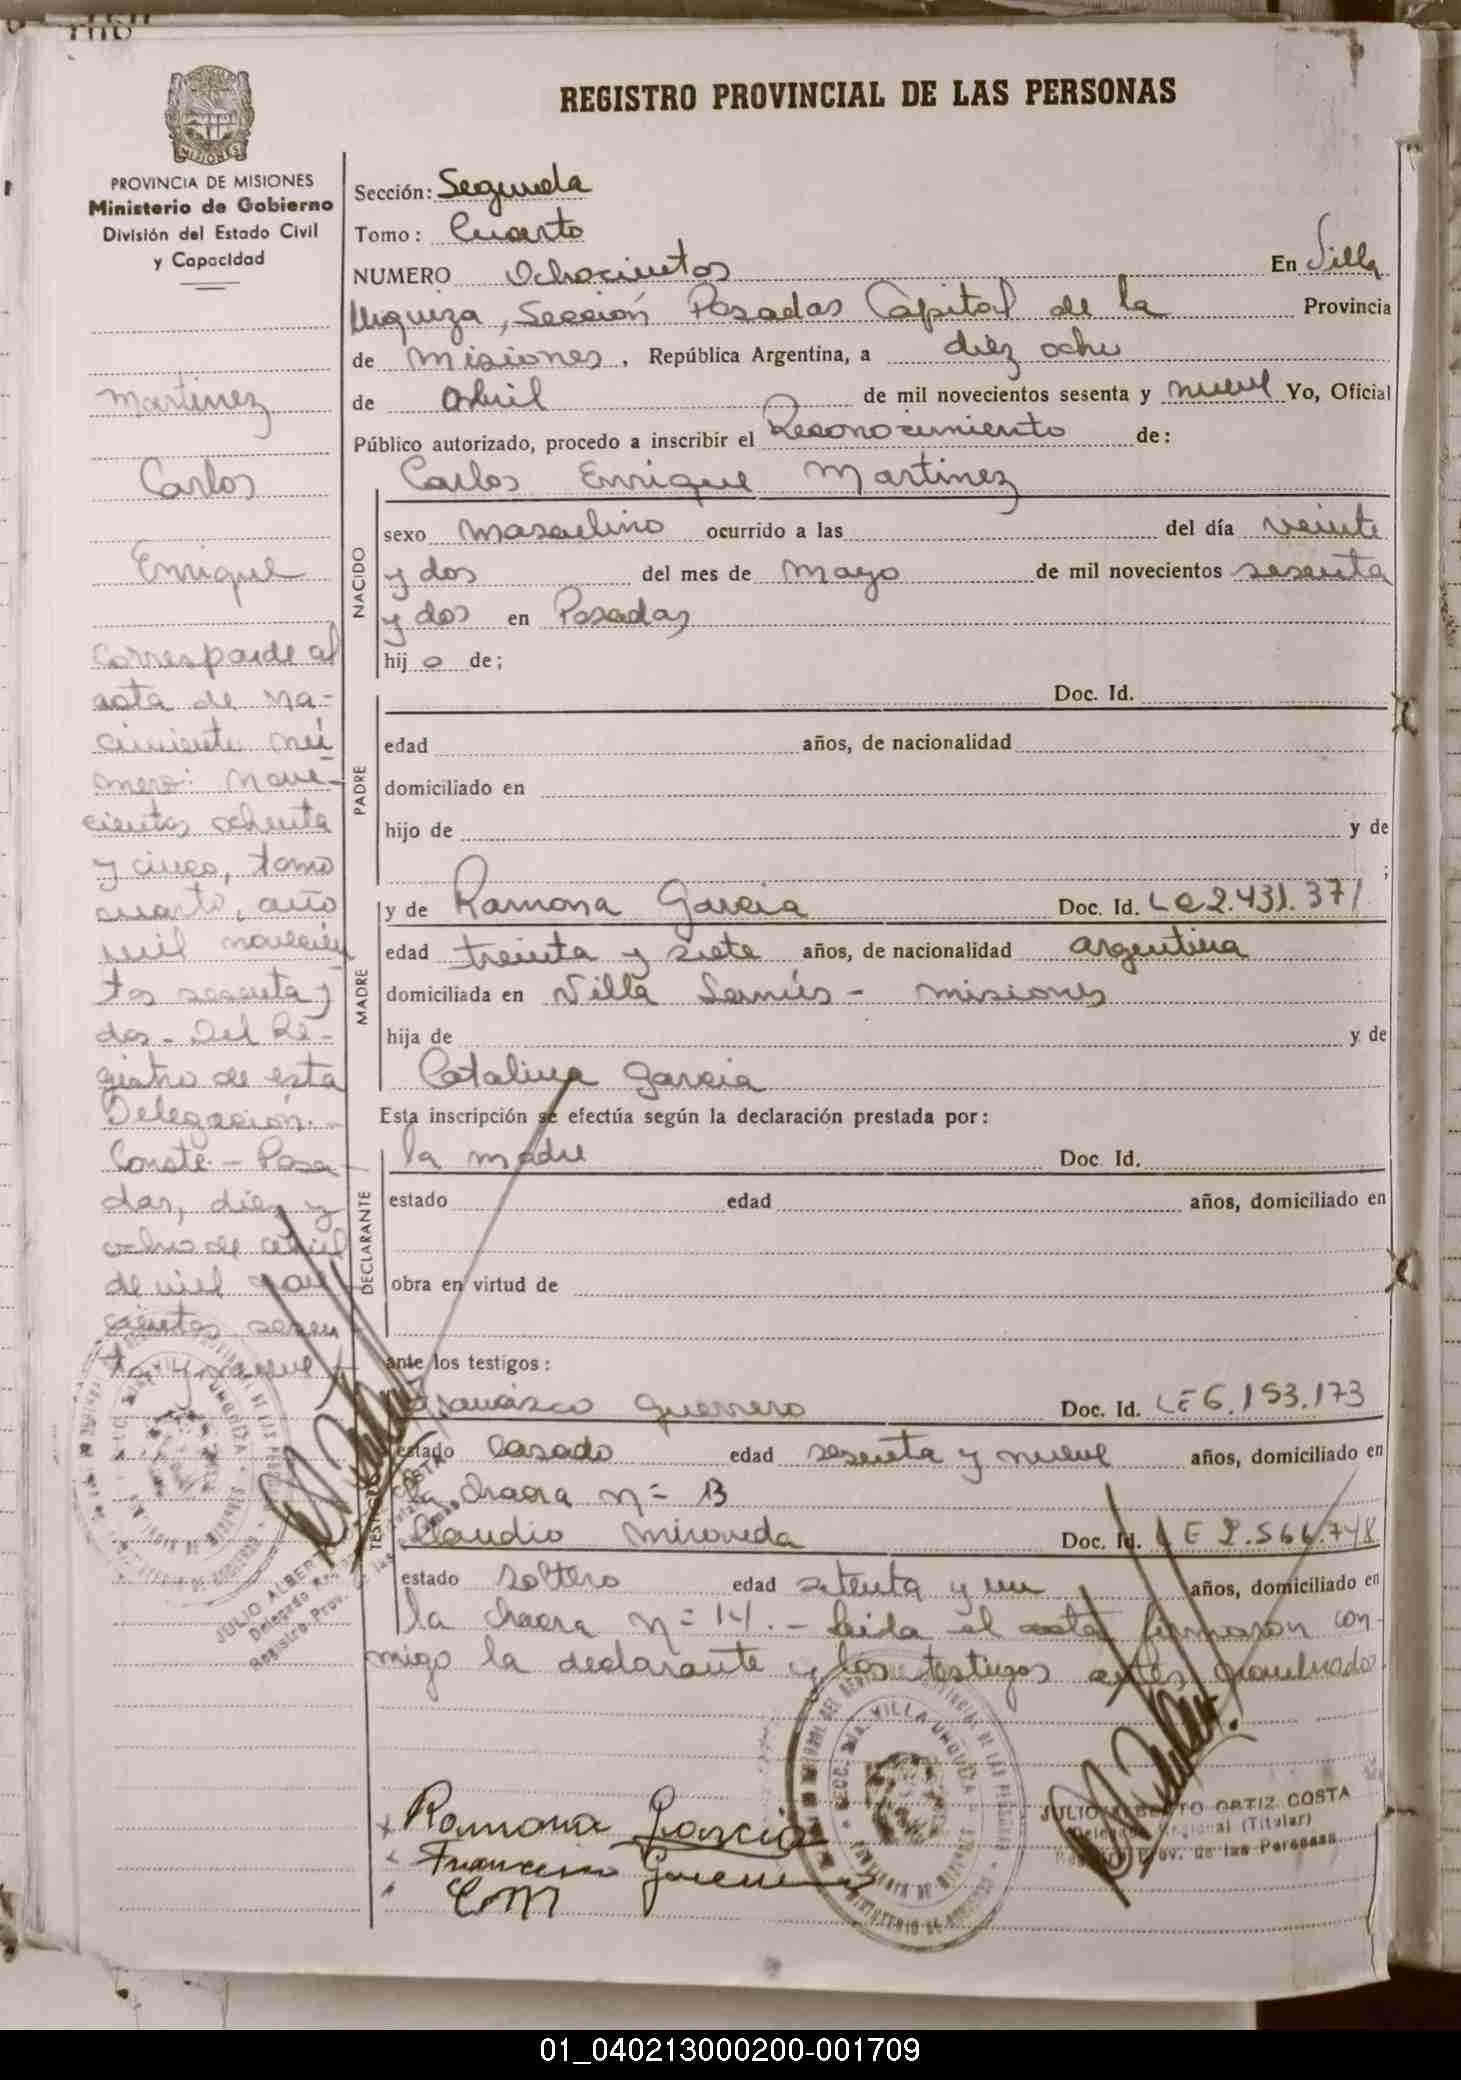 REGISTRO PROVINCIAL DE LAS PERSONAS
MISIONES
PROVINCIA DE MISIONES
Ministerio de Gobierno
División del Estado Civil
y Capacidad
Martinez
Carlos
Enrique
Corresponde al
acta de na-
cimiento nú
mero: nove-
cientos ochenta
y cinco, tomo
cuarto, año
mil novecien
tos sesenta y
dos. Del Re-
gistro de esta
Delegación.-
Conste.- Posa-
das, diez y
ocho de abril
de mil nove
cientos sesen
ta y nueve
Sección: Segunda
Tomo: Cuarto
NUMERO Ochocientos En Villa
Urquiza, Sección Posadas Capital de la Provincia
de Misiones, República Argentina, a diez ocho
de abril de mil novecientos sesenta y nueve Yo, Oficial
Público autorizado, procedo a inscribir el Reconocimiento de:
Carlos Enrique Martinez
NACIDO
sexo masculino ocurrido a las del día veinte
y dos del mes de mayo de mil novecientos sesenta
y dos en Posadas
hij o de;
Doc. Id.
PADRE
edad años, de nacionalidad
domiciliado en
hijo de y de
;
MADRE
y de Ramona Garcia Doc. Id. LC 2.431.371
edad treinta y siete años, de nacionalidad argentina
domiciliada en Villa Lanús - Misiones
hija de y de
Catalina Garcia
Esta inscripción se efectúa según la declaración prestada por:
DECLARANTE
la madre Doc. Id.
estado edad años, domiciliado en
obra en virtud de
ante los testigos:
Francisco Guerrero Doc. Id. LE 6.153.173
estado casado edad sesenta y nueve años, domiciliado en
la chacra n= 13
Claudio Miranda Doc. Id. LE 2.566.748
estado soltero edad setenta y un años, domiciliado en
la chacra n= 14.- Leida el acta firmaron con-
migo la declarante y los testigos antes nombrados.
Ramona Garcia
Francisco Guerrero
CM
JULIO ALBERTO ORTIZ COSTA
Delegado Regional (Titular)
Registro Prov. de las Personas
01_040213000200-001709